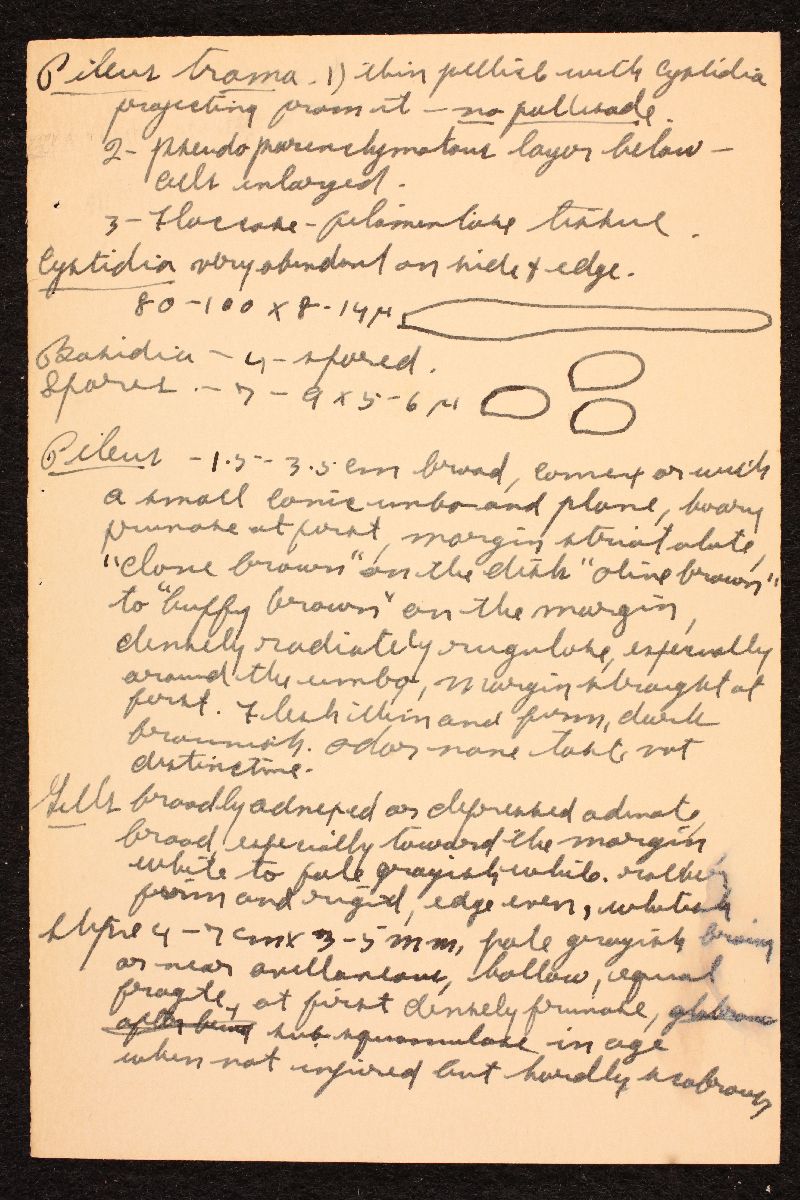 Pileus trama. 1) thin pellicle with cystidia
projecting from it — no pallisade.
2- pseudoparenchymatous layer below —
cells enlarged.
3 - Floccose - filamentose tissue.
Cystidia very abundant on side & edge.
80-100 x 8-14 μ
Basidia — 4-spored.
Spores. — 7 - 9 x 5-6 μ
Pileus - 1.5 - 3.5 cm broad, convex or with
a small conic umbo and plane, hoary
pruinose at first, margin striatulate,
"clove brown" on the disk "olive brown"
to "buffy brown" on the margin,
densely radiately rugulose, especially
around the umbo, margin straight at
first. Flesh thin and firm, dark
brownish. odor none taste not
distinctive.
Gills broadly adnexed or depressed adnate,
broad especially toward the margin
white to pale grayish white. rather
firm and rigid, edge even, whitish
stipe 4 - 7 cm x 3-5 mm, pale grayish brown
or near avellaneous, hollow, equal
fragile, at first densely pruinose, glabrous
after being sub squamulose in age
when not injured but hardly scabrous